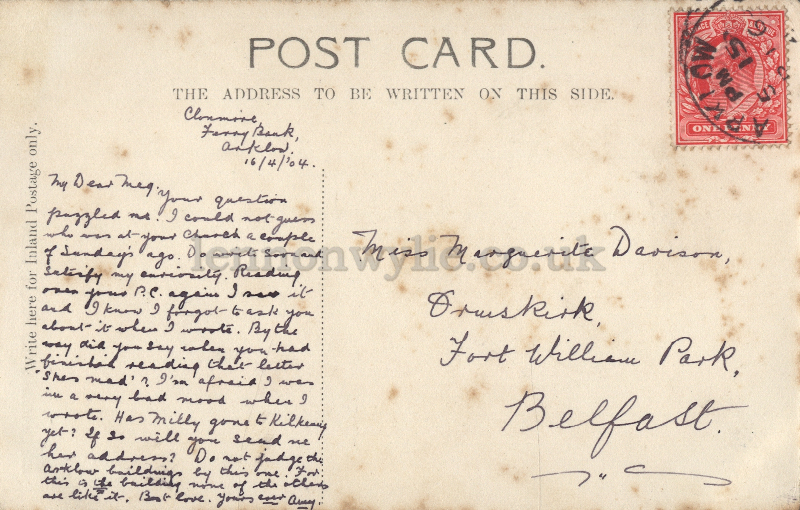 POST CARD.
THE ADDRESS TO BE WRITTEN ON THIS SIDE.
Write here for Inland Postage only.
ONE PENNY
ARKLOW
PM
15
Clonmore,
Ferry Bank,
Arklow.
16/4/'04.
My Dear Meg, Your question
puzzled me. I could not guess
who was at your Church a couple
of Sunday's ago. Do write soon and
satisfy my curiosity. Reading
over your P.C. again I see it
and I know I forgot to ask you
about it when I wrote. By the
way did you say when you had
finished reading that letter
"She's mad"? I'm afraid I was
in a very bad mood when I
wrote. Has Milly gone to Kilkenny
yet? If so will you send me
her address? Do not judge the
Arklow buildings by this one. For
this is the building none of the others
are like it. Best love. Yours ever Amy.
Miss Marguerite Davison,
Ormskirk,
Fort William Park,
Belfast.
lennonwylie.co.uk